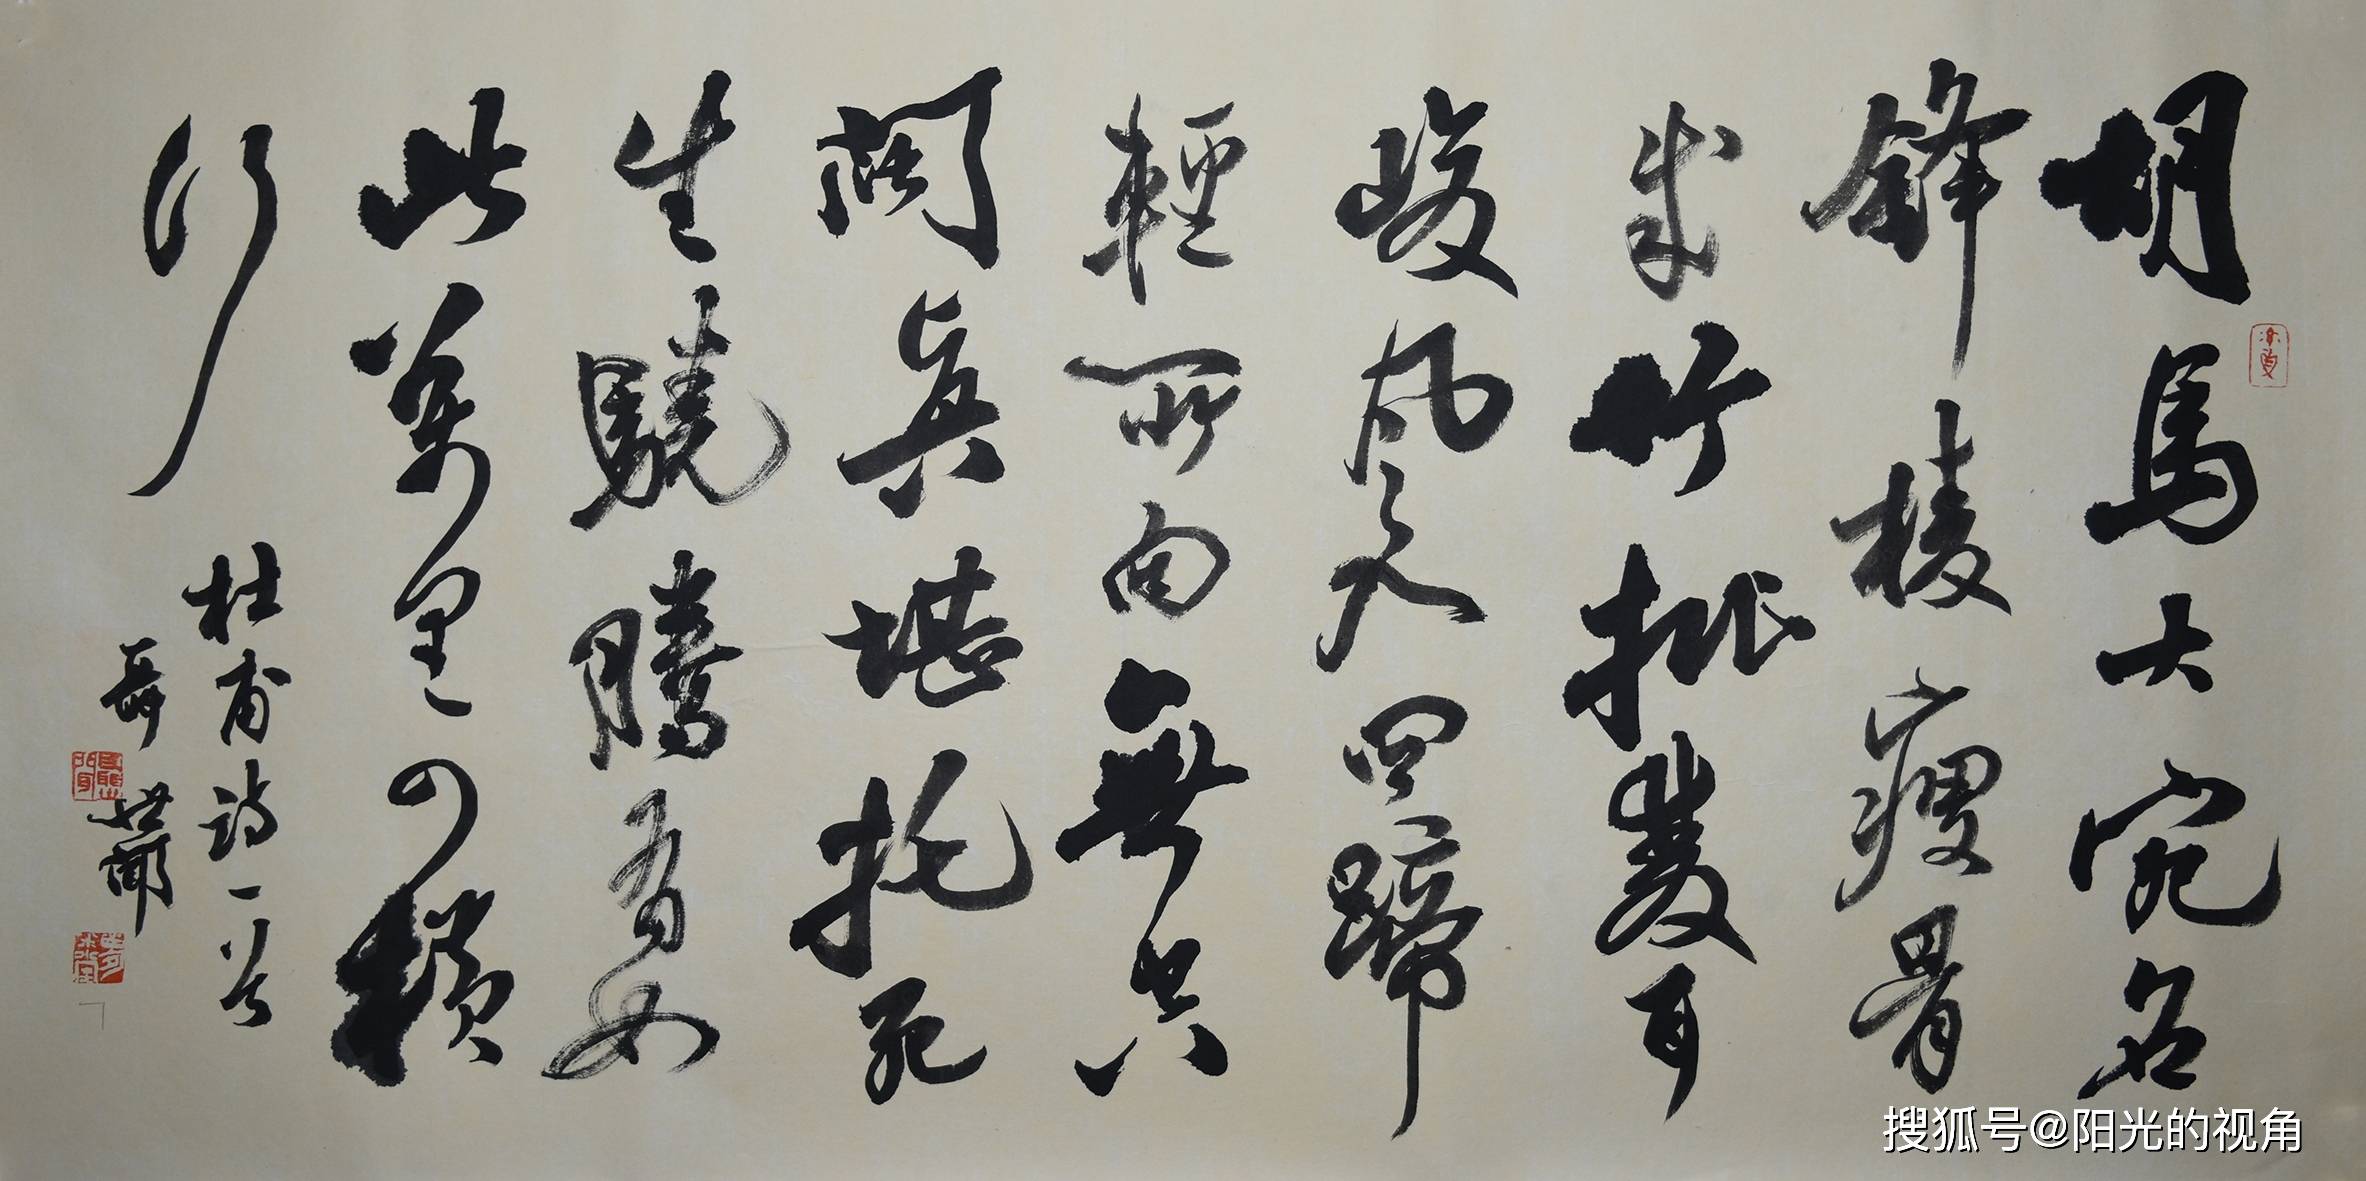 胡馬大宛名
鋒棱瘦骨
成竹批雙耳
峻風入四蹄
輕所向無空
闊真堪托死
生驍騰有如
此萬里可橫
行
杜甫詩一首
聶世聞
搜狐号@阳光的视角